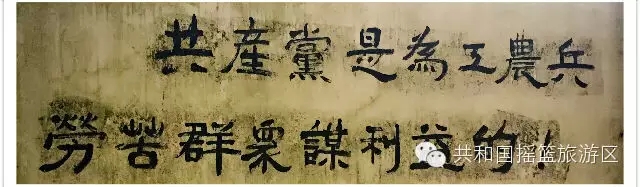 共產黨是為工農兵
勞苦群眾謀利益的！
共和国摇篮旅游区